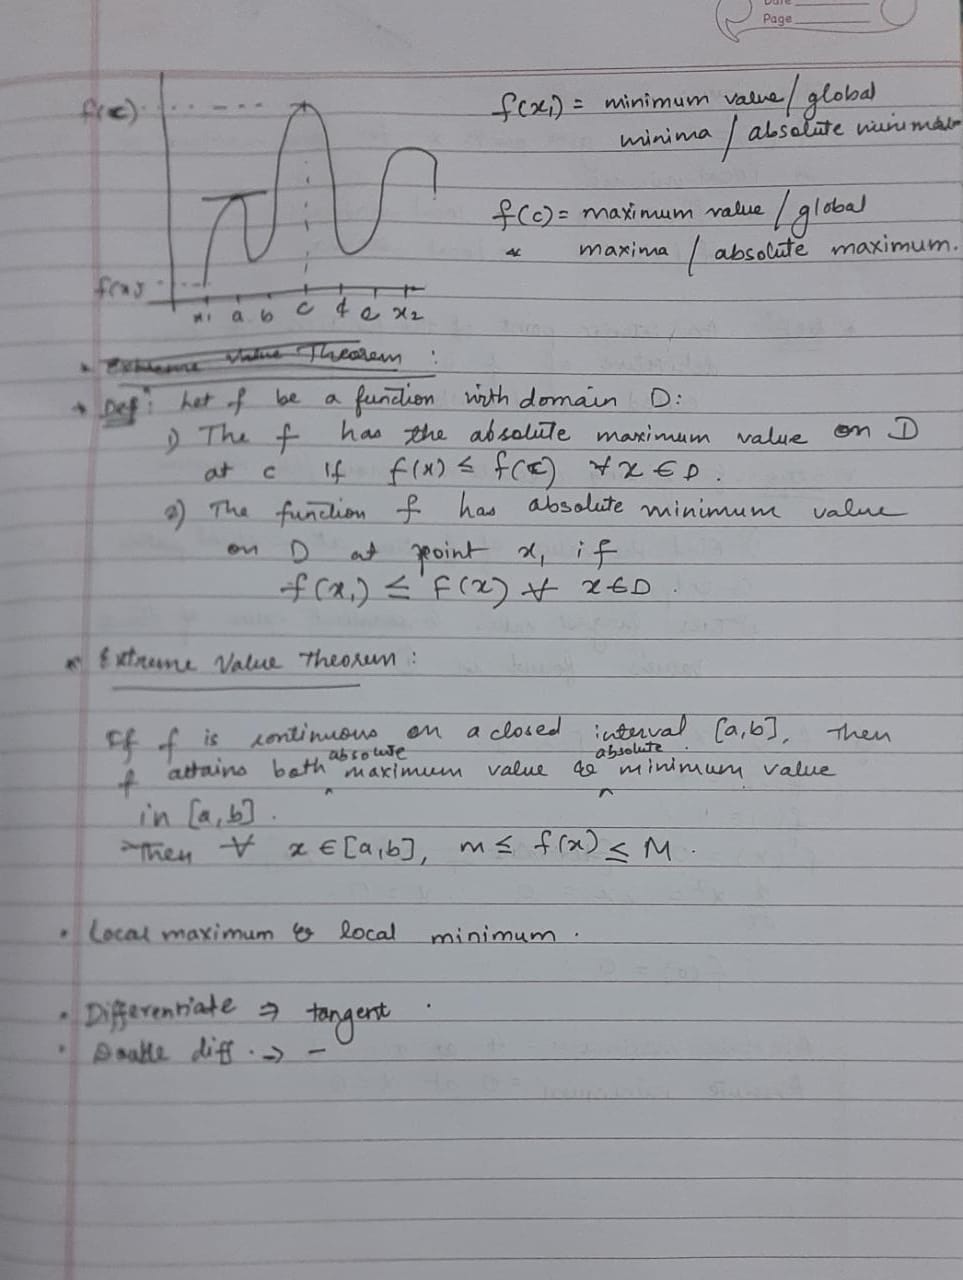 Date
Page
f(c)
f(x1) = minimum value / global
minima / absolute minima
f(c) = maximum value / global
maxima / absolute maximum.
f(x1)
x1 a b c d e x2
Extreme Value Theorem :
Def : Let f be a function with domain D:
1) The f has the absolute maximum value on D
at c if f(x) ≤ f(c) ∀ x ∈ D .
2) The function f has absolute minimum value
on D at point x1 if
f(x1) ≤ F(x) ∀ x ∈ D .
Extreme Value Theorem :
If f is continuous on a closed interval [a,b], then
absolute absolute
f attains both ^ maximum value & ^ minimum value
in [a,b] .
Then ∀ x ∈ [a,b], m ≤ f(x) ≤ M .
• Local maximum & local minimum .
• Differentiate ⇒ tangent .
• Double diff . → –